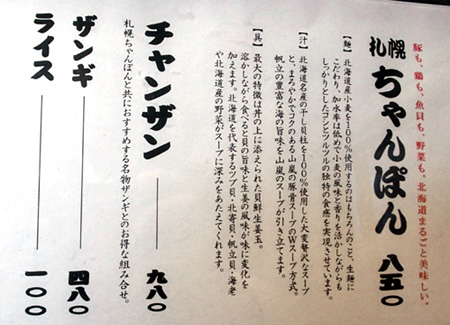 豚も、鶏も、魚貝も、野菜も。北海道まるごと美味しい。
札幌ちゃんぽん 八五〇
【麺】北海道産小麦を100％使用するのはもちろんのこと、生麺に
こだわり、加水率は低めで小麦の風味と香りを活かしながらも
しっかりとしたコシとツルツルの独特の食感を実現させています。
【汁】北海道名産の干し貝柱を100％使用した大変贅沢なスープ
と、まろやかでコクのある山嵐の豚骨スープのWスープ方式。
帆立の豊富な海の旨味を山嵐のスープが引き立てます。
【具】最大の特徴は丼の上に添えられた貝鮮生姜玉。
溶かしながら食べると貝の旨味と生姜の風味が味に変化を
加えます。北海道を代表するツブ貝・北寄貝・帆立貝・海老
や北海道産の野菜がスープに深みをあたえてくれます。
チャンザン 九八〇
札幌ちゃんぽんと共におすすめする名物ザンギとのお得な組み合せ。
ザンギ 四八〇
ライス 一〇〇